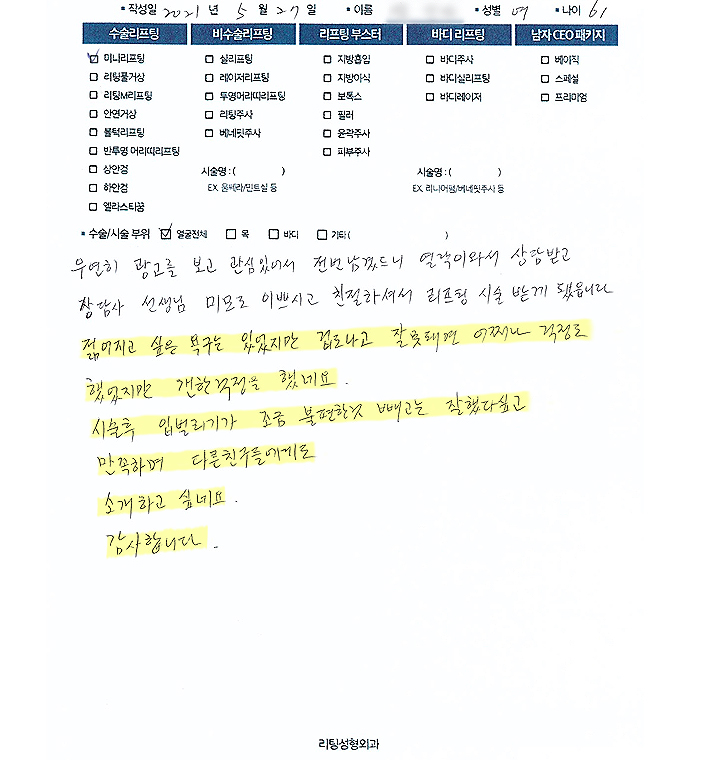 • 작성일 2021 년 5 월 27 일 • 이름 • 성별 여 • 나이 61
수술리프팅 비수술리프팅 리프팅 부스터 바디 리프팅 남자 CEO 패키지
☑ 미니리프팅 □ 실리프팅 □ 지방흡입 □ 바디주사 □ 베이직
□ 리팅풀거상 □ 레이저리프팅 □ 지방이식 □ 바디실리프팅 □ 스페셜
□ 리팅M리프팅 □ 투명머리띠리프팅 □ 보톡스 □ 바디레이저 □ 프리미엄
□ 안면거상 □ 리팅주사 □ 필러
□ 볼턱리프팅 □ 베네핏주사 □ 윤곽주사
□ 반투명 머리띠리프팅 □ 피부주사
□ 상안검 시술명 : ( ) 시술명 : ( )
□ 하안검 EX. 울쎄라/민트실 등 EX. 리니어펌/베네핏주사 등
□ 엘라스티꿈
• 수술/시술 부위 ☑ 얼굴전체 □ 목 □ 바디 □ 기타 ( )
우연히 광고를 보고 관심있어서 전번남겼드니 연락이와서 상담받고
상담사 선생님 미모로 이쁘시고 친절하셔서 리프팅 시술 받게 됐읍니다
젊어지고 싶은 욕구는 있었지만 겁도나고 잘못돼면 어쩌나 걱정도
했었지만 갠한걱정을 했네요.
시술후 입벌리기가 조금 불편한것 빼고는 잘했다싶고
만족하며 다른친구들에게도
소개하고 싶네요.
감사합니다.
리팅성형외과